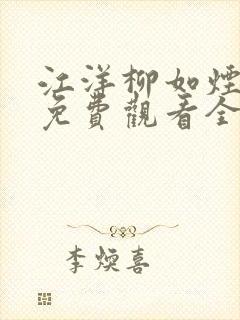 江洋柳如煙
免費觀看全
李煥喜